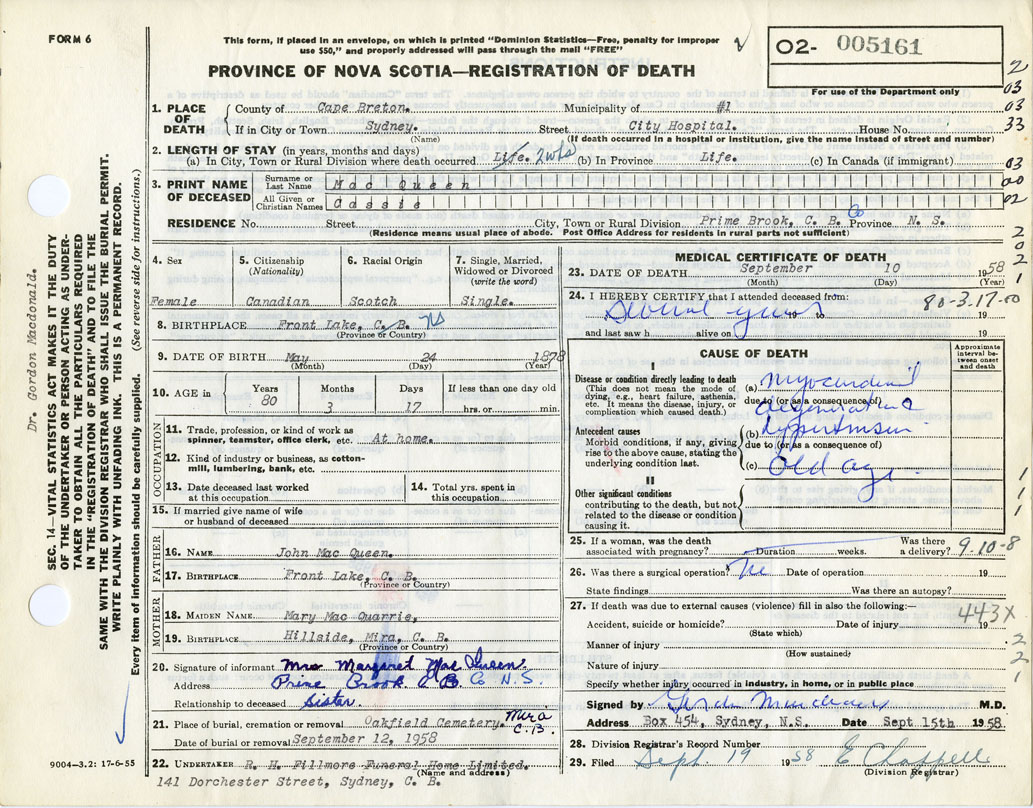 FORM 6
This form, if placed in an envelope, on which is printed "Dominion Statistics—Free, penalty for improper
use $50," and properly addressed will pass through the mail "FREE"
02- 005161
PROVINCE OF NOVA SCOTIA—REGISTRATION OF DEATH
For use of the Department only
2
03
03
33
03
00
02
2
0
2
1
1. PLACE OF DEATH
County of Cape Breton. Municipality of #1
If in City or Town Sydney. Street City Hospital. House No.
(Name) (If death occurred in a hospital or institution, give the name instead of street and number)
2. LENGTH OF STAY (in years, months and days)
(a) In City, Town or Rural Division where death occurred Life. 2wks (b) In Province Life. (c) In Canada (if immigrant)
3. PRINT NAME OF DECEASED
Surname or Last Name Mac Queen
All Given or Christian Names Cassie
RESIDENCE No. Street City, Town or Rural Division Prime Brook, C. B. Co Province N. S.
(Residence means usual place of abode. Post Office Address for residents in rural parts not sufficient)
4. Sex
Female
5. Citizenship
(Nationality)
Canadian
6. Racial Origin
Scotch
7. Single, Married,
Widowed or Divorced
(write the word)
Single.
8. BIRTHPLACE Front Lake, C. B. NS
(Province or Country)
9. DATE OF BIRTH May 24 1878
(Month) (Day) (Year)
10. AGE in
Years Months Days If less than one day old
80 3 17 hrs. or min.
OCCUPATION
11. Trade, profession, or kind of work as
spinner, teamster, office clerk, etc. At home.
12. Kind of industry or business, as cotton-
mill, lumbering, bank, etc.
13. Date deceased last worked
at this occupation
14. Total yrs. spent in
this occupation
15. If married give name of wife
or husband of deceased
FATHER
16. NAME John Mac Queen.
17. BIRTHPLACE Front Lake, C. B.
(Province or Country)
MOTHER
18. MAIDEN NAME Mary Mac Quarrie,
19. BIRTHPLACE Hillside, Mira, C. B.
(Province or Country)
20. Signature of informant Mrs Margaret Mac Queen
Address Prime Brook C B Co N.S.
Relationship to deceased Sister.
21. Place of burial, cremation or removal Oakfield Cemetery. Mira C.B.
Date of burial or removal September 12, 1958
22. UNDERTAKER R. H. Fillmore Funeral Home Limited.
(Name and address)
141 Dorchester Street, Sydney, C. B.
MEDICAL CERTIFICATE OF DEATH
23. DATE OF DEATH September 10 1958
(Month) (Day) (Year)
24. I HEREBY CERTIFY that I attended deceased from: 80-3.17.00
Several years to 19
and last saw h alive on 19
CAUSE OF DEATH
Approximate interval between onset and death
I
Disease or condition directly leading to death
(This does not mean the mode of
dying, e.g., heart failure, asthenia,
etc. It means the disease, injury, or
complication which caused death.)
(a) Myocardial
due to (or as a consequence of)
degeneration
Antecedent causes
Morbid conditions, if any, giving
rise to the above cause, stating the
underlying condition last.
(b) hypertension
due to (or as a consequence of)
(c) Old age
II
Other significant conditions
contributing to the death, but not
related to the disease or condition
causing it.
1
1
1
25. If a woman, was the death
associated with pregnancy? Duration weeks. Was there
a delivery? 9-10-8
26. Was there a surgical operation? No Date of operation 19
State findings Was there an autopsy?
27. If death was due to external causes (violence) fill in also the following:—
443X
Accident, suicide or homicide? Date of injury 19
(State which)
Manner of injury
(How sustained)
Nature of injury
2
2
1
Specify whether injury occurred in industry, in home, or in public place
Signed by Gordon Macdonald M.D.
Address Box 454, Sydney, N.S. Date Sept 15th 1958.
28. Division Registrar's Record Number
29. Filed Sept. 19 1958 E Chappell
(Division Registrar)
Dr. Gordon Macdonald.
SEC. 14—VITAL STATISTICS ACT MAKES IT THE DUTY
OF THE UNDERTAKER OR PERSON ACTING AS UNDER-
TAKER TO OBTAIN ALL THE PARTICULARS REQUIRED
IN THE "REGISTRATION OF DEATH" AND TO FILE THE
SAME WITH THE DIVISION REGISTRAR WHO SHALL ISSUE THE BURIAL PERMIT.
WRITE PLAINLY WITH UNFADING INK. THIS IS A PERMANENT RECORD.
Every item of information should be carefully supplied. (See reverse side for instructions.)
9004—3.2: 17-6-55